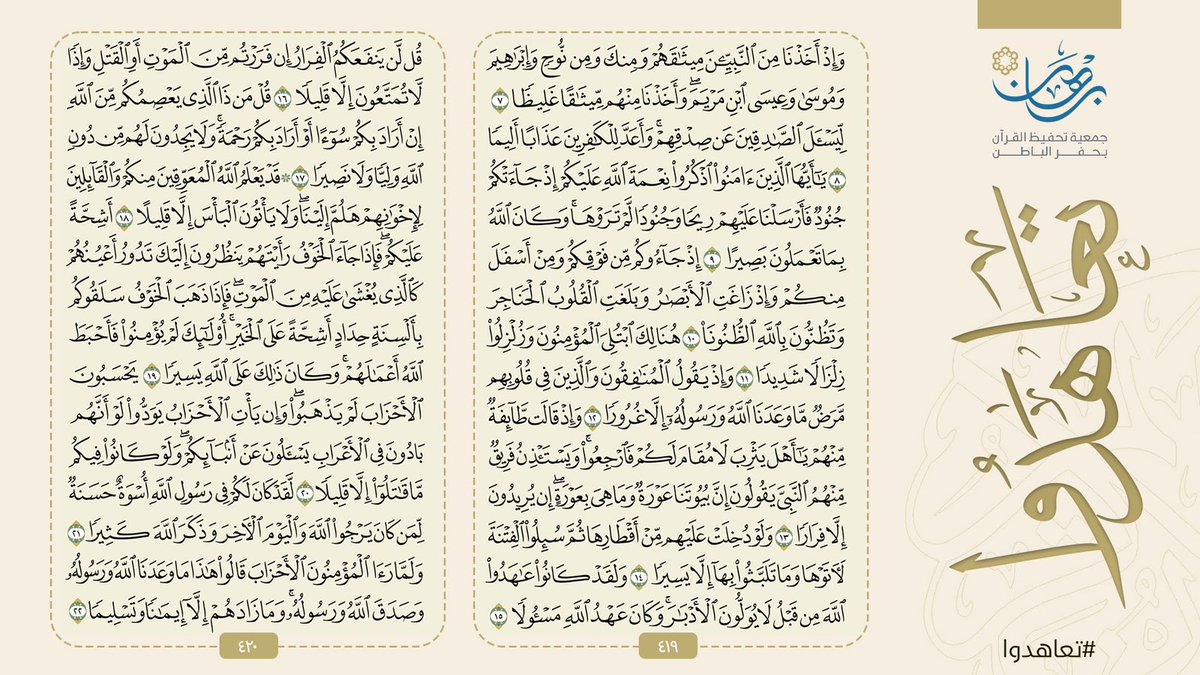 برهان
جمعية تحفيظ القرآن
بحفر الباطن
تعاهدوا
#تعاهدوا
وَإِذْ أَخَذْنَا مِنَ ٱلنَّبِيِّـۧنَ مِيثَٰقَهُمْ وَمِنكَ وَمِن نُّوحٍ وَإِبْرَٰهِيمَ
وَمُوسَىٰ وَعِيسَى ٱبْنِ مَرْيَمَۖ وَأَخَذْنَا مِنْهُم مِّيثَٰقًا غَلِيظًا ٧
لِّيَسْـَٔلَ ٱلصَّٰدِقِينَ عَن صِدْقِهِمْۚ وَأَعَدَّ لِلْكَٰفِرِينَ عَذَابًا أَلِيمًا
٨ يَٰٓأَيُّهَا ٱلَّذِينَ ءَامَنُوا۟ ٱذْكُرُوا۟ نِعْمَةَ ٱللَّهِ عَلَيْكُمْ إِذْ جَآءَتْكُمْ
جُنُودٌ فَأَرْسَلْنَا عَلَيْهِمْ رِيحًا وَجُنُودًا لَّمْ تَرَوْهَاۚ وَكَانَ ٱللَّهُ
بِمَا تَعْمَلُونَ بَصِيرًا ٩ إِذْ جَآءُوكُم مِّن فَوْقِكُمْ وَمِنْ أَسْفَلَ
مِنكُمْ وَإِذْ زَاغَتِ ٱلْأَبْصَٰرُ وَبَلَغَتِ ٱلْقُلُوبُ ٱلْحَنَاجِرَ
وَتَظُنُّونَ بِٱللَّهِ ٱلظُّنُونَا۠ ١٠ هُنَالِكَ ٱبْتُلِىَ ٱلْمُؤْمِنُونَ وَزُلْزِلُوا۟
زِلْزَالًا شَدِيدًا ١١ وَإِذْ يَقُولُ ٱلْمُنَٰفِقُونَ وَٱلَّذِينَ فِى قُلُوبِهِم
مَّرَضٌ مَّا وَعَدَنَا ٱللَّهُ وَرَسُولُهُۥٓ إِلَّا غُرُورًا ١٢ وَإِذْ قَالَت طَّآئِفَةٌ
مِّنْهُمْ يَٰٓأَهْلَ يَثْرِبَ لَا مُقَامَ لَكُمْ فَٱرْجِعُوا۟ۚ وَيَسْتَـْٔذِنُ فَرِيقٌ
مِّنْهُمُ ٱلنَّبِىَّ يَقُولُونَ إِنَّ بُيُوتَنَا عَوْرَةٌ وَمَا هِىَ بِعَوْرَةٍۖ إِن يُرِيدُونَ
إِلَّا فِرَارًا ١٣ وَلَوْ دُخِلَتْ عَلَيْهِم مِّنْ أَقْطَارِهَا ثُمَّ سُئِلُوا۟ ٱلْفِتْنَةَ
لَـَٔاتَوْهَا وَمَا تَلَبَّثُوا۟ بِهَآ إِلَّا يَسِيرًا ١٤ وَلَقَدْ كَانُوا۟ عَٰهَدُوا۟
ٱللَّهَ مِن قَبْلُ لَا يُوَلُّونَ ٱلْأَدْبَٰرَۚ وَكَانَ عَهْدُ ٱللَّهِ مَسْـُٔولًا ١٥
٤١٩
قُل لَّن يَنفَعَكُمُ ٱلْفِرَارُ إِن فَرَرْتُم مِّنَ ٱلْمَوْتِ أَوِ ٱلْقَتْلِ وَإِذًا
لَّا تُمَتَّعُونَ إِلَّا قَلِيلًا ١٦ قُلْ مَن ذَا ٱلَّذِى يَعْصِمُكُم مِّنَ ٱللَّهِ
إِنْ أَرَادَ بِكُمْ سُوٓءًا أَوْ أَرَادَ بِكُمْ رَحْمَةًۚ وَلَا يَجِدُونَ لَهُم مِّن دُونِ
ٱللَّهِ وَلِيًّا وَلَا نَصِيرًا ١٧ ۞ قَدْ يَعْلَمُ ٱللَّهُ ٱلْمُعَوِّقِينَ مِنكُمْ وَٱلْقَآئِلِينَ
لِإِخْوَٰنِهِمْ هَلُمَّ إِلَيْنَاۖ وَلَا يَأْتُونَ ٱلْبَأْسَ إِلَّا قَلِيلًا ١٨ أَشِحَّةً
عَلَيْكُمْۖ فَإِذَا جَآءَ ٱلْخَوْفُ رَأَيْتَهُمْ يَنظُرُونَ إِلَيْكَ تَدُورُ أَعْيُنُهُمْ
كَٱلَّذِى يُغْشَىٰ عَلَيْهِ مِنَ ٱلْمَوْتِۖ فَإِذَا ذَهَبَ ٱلْخَوْفُ سَلَقُوكُم
بِأَلْسِنَةٍ حِدَادٍ أَشِحَّةً عَلَى ٱلْخَيْرِۚ أُو۟لَٰٓئِكَ لَمْ يُؤْمِنُوا۟ فَأَحْبَطَ
ٱللَّهُ أَعْمَٰلَهُمْۚ وَكَانَ ذَٰلِكَ عَلَى ٱللَّهِ يَسِيرًا ١٩ يَحْسَبُونَ
ٱلْأَحْزَابَ لَمْ يَذْهَبُوا۟ۖ وَإِن يَأْتِ ٱلْأَحْزَابُ يَوَدُّوا۟ لَوْ أَنَّهُم
بَادُونَ فِى ٱلْأَعْرَابِ يَسْـَٔلُونَ عَنْ أَنۢبَآئِكُمْۖ وَلَوْ كَانُوا۟ فِيكُم
مَّا قَٰتَلُوٓا۟ إِلَّا قَلِيلًا ٢٠ لَّقَدْ كَانَ لَكُمْ فِى رَسُولِ ٱللَّهِ أُسْوَةٌ حَسَنَةٌ
لِّمَن كَانَ يَرْجُوا۟ ٱللَّهَ وَٱلْيَوْمَ ٱلْـَٔاخِرَ وَذَكَرَ ٱللَّهَ كَثِيرًا ٢١
وَلَمَّا رَءَا ٱلْمُؤْمِنُونَ ٱلْأَحْزَابَ قَالُوا۟ هَٰذَا مَا وَعَدَنَا ٱللَّهُ وَرَسُولُهُۥ
وَصَدَقَ ٱللَّهُ وَرَسُولُهُۥۚ وَمَا زَادَهُمْ إِلَّآ إِيمَٰنًا وَتَسْلِيمًا ٢٢
٤٢٠